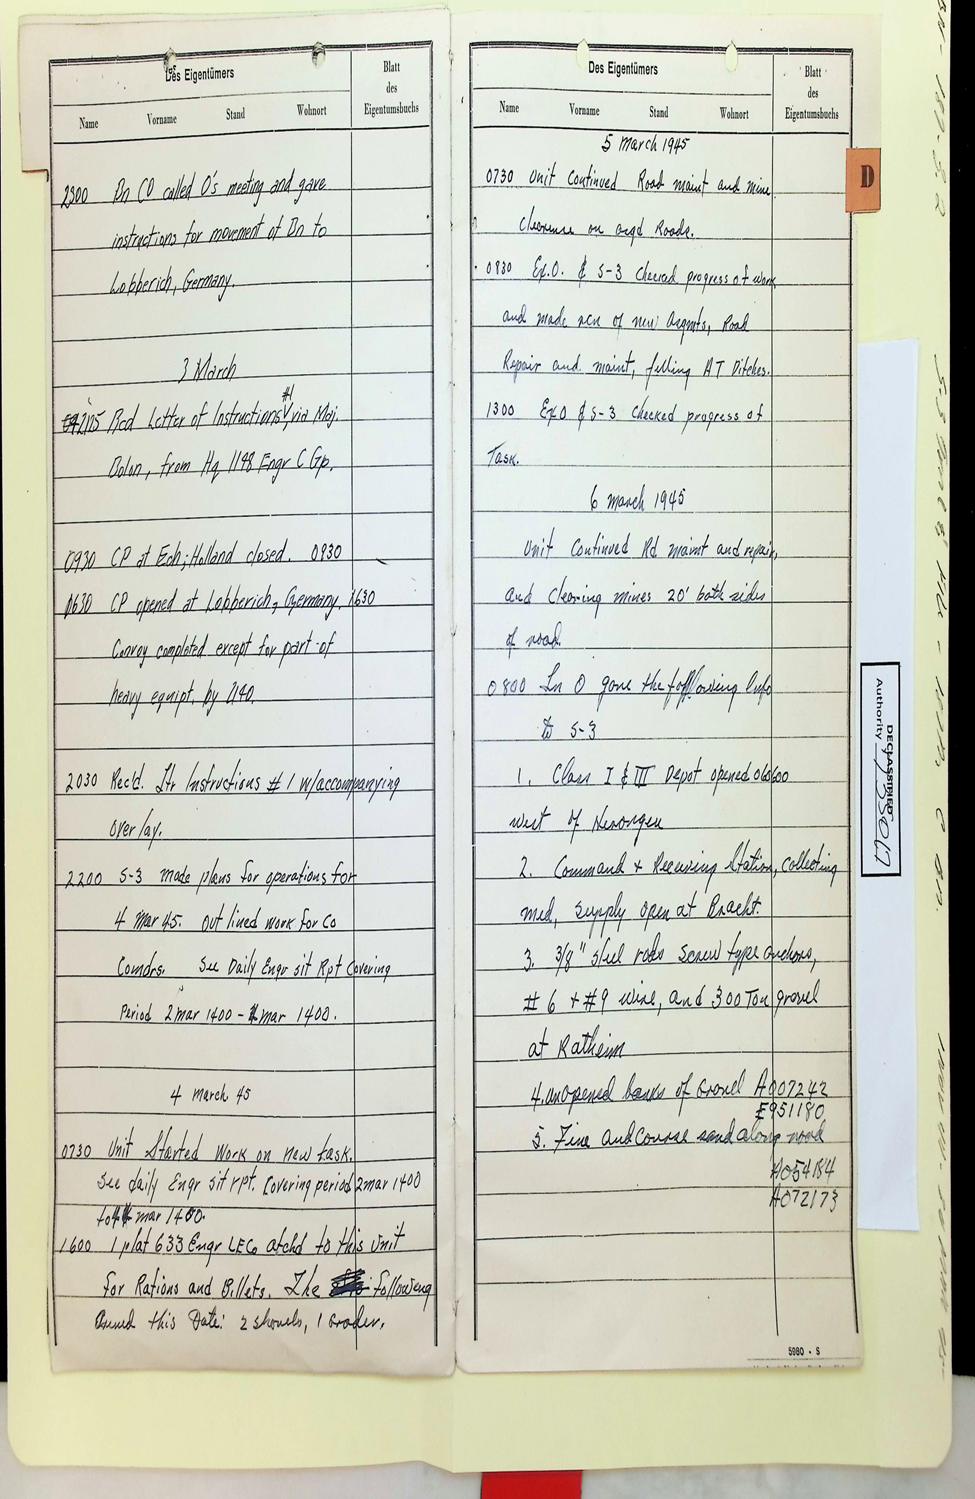 Des Eigentümers
Blatt
des
Eigentumsbuchs
Name Vorname Stand Wohnort
2300 Bn CO called O's meeting and gave
instructions for movement of Bn to
Lobberich, Germany.
3 March
2115 Rcd Letter of Instructions #1 via Maj.
Dolon, from Hq 1148 Engr C Gp.
0930 CP at Ech; Holland closed. 0930
1630 CP opened at Lobberich, Germany, 1630
Convoy completed except for part of
heavy equipt. by 2140.
2030 Rec'd. ltr Instructions # 1 w/accompanying
overlay.
2200 S-3 made plans for operations for
4 Mar 45. Out lined work for Co
Comdrs. See Daily Engr sit Rpt Covering
Period 2 mar 1400 - mar 1400.
4 march 45
0730 Unit Started Work on New task.
See daily Engr sit rpt. Covering period 2 mar 1400
to 4 mar 1400.
1600 1 plat 633 Engr LECo atchd to this Unit
for Rations and Billets. The following
this Date: 2 Shovels, 1 Grader.
Des Eigentümers
Blatt
des
Eigentumsbuchs
Name Vorname Stand Wohnort
5 March 1945
0730 Unit Continued Road maint and mine
Clearence on asgd Roads.
0830 Ex.O. & S-3 Checked progress of work
and made rcn of new Asgmts, Road
Repair and maint, filling AT Ditches.
1300 Ex.O & S-3 Checked progress of
Task.
6 march 1945
Unit Continued Rd maint and repair,
and Clearing mines 20' both sides
of road.
0800 Ln O gave the following Info
to S-3
1. Class I & III Depot opened 060600
west of Herongen
2. Command + Receiving Station, Collecting
med, supply open at Bracht.
3. 3/8" steel rods Screw type anchors,
# 6 + #9 wire, and 300 Ton gravel
at Ratheim
4. unopened banks of Gravel A007242
E951180
5. Fine and Course sand along road
A054184
A072173
5980 - S
D
DECLASSIFIED
Authority 735017